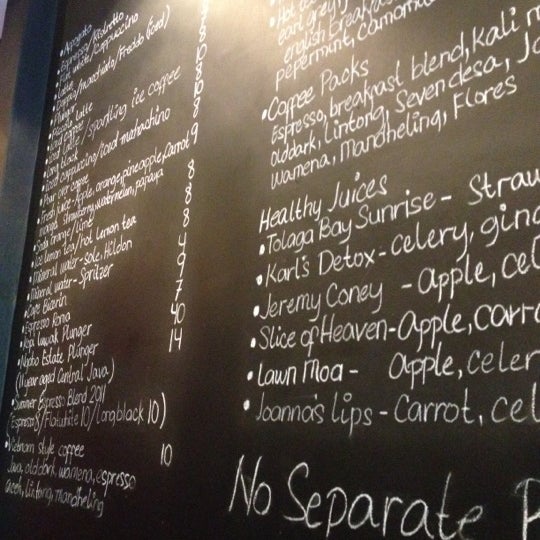 Affogato
Espresso/Ristretto
Flat white/Cappuccino
Coffee/macchiato/Freddo (iced)
Latte
Piccolo latte
Iced coffee
Iced latte/sparkling ice coffee
Long black
Iced cappuccino/iced mochachino
Pour over coffee 9
Fresh juice-Apple, orange, pineapple, carrot 8
Strawberry, watermelon, papaya 8
Soda orange/lime 8
Ice lemon tea/hot lemon tea 8
Mineral water-sole, Hildon 4
Mineral water-Spritzer 9
Cafe Bizerin 7
Espresso Roma 7
Kopi Luwak Plunger 40
Estate Plunger 14
(11 year aged Central Java)
Summer Espresso Blend 2011
(Espresso 8/Flatwhite 10/Long black 10)
Vietnam style coffee 10
Java, olddark, wamena, espresso
aceh, lintong, mandheling
earl grey
english breakfast
peppermint, camomile
Coffee Packs
Espresso, breakfast blend, kali m
olddark, lintong, Seven desa, Ja
Wamena, Mandheling, Flores
Healthy Juices
Tolaga Bay Sunrise - Straw
Karl's Detox - celery, ging
Jeremy Coney - Apple, cel
Slice of Heaven - Apple, carro
Lawn Moa - Apple, celer
Joanna's Lips - Carrot, cel
No Separate